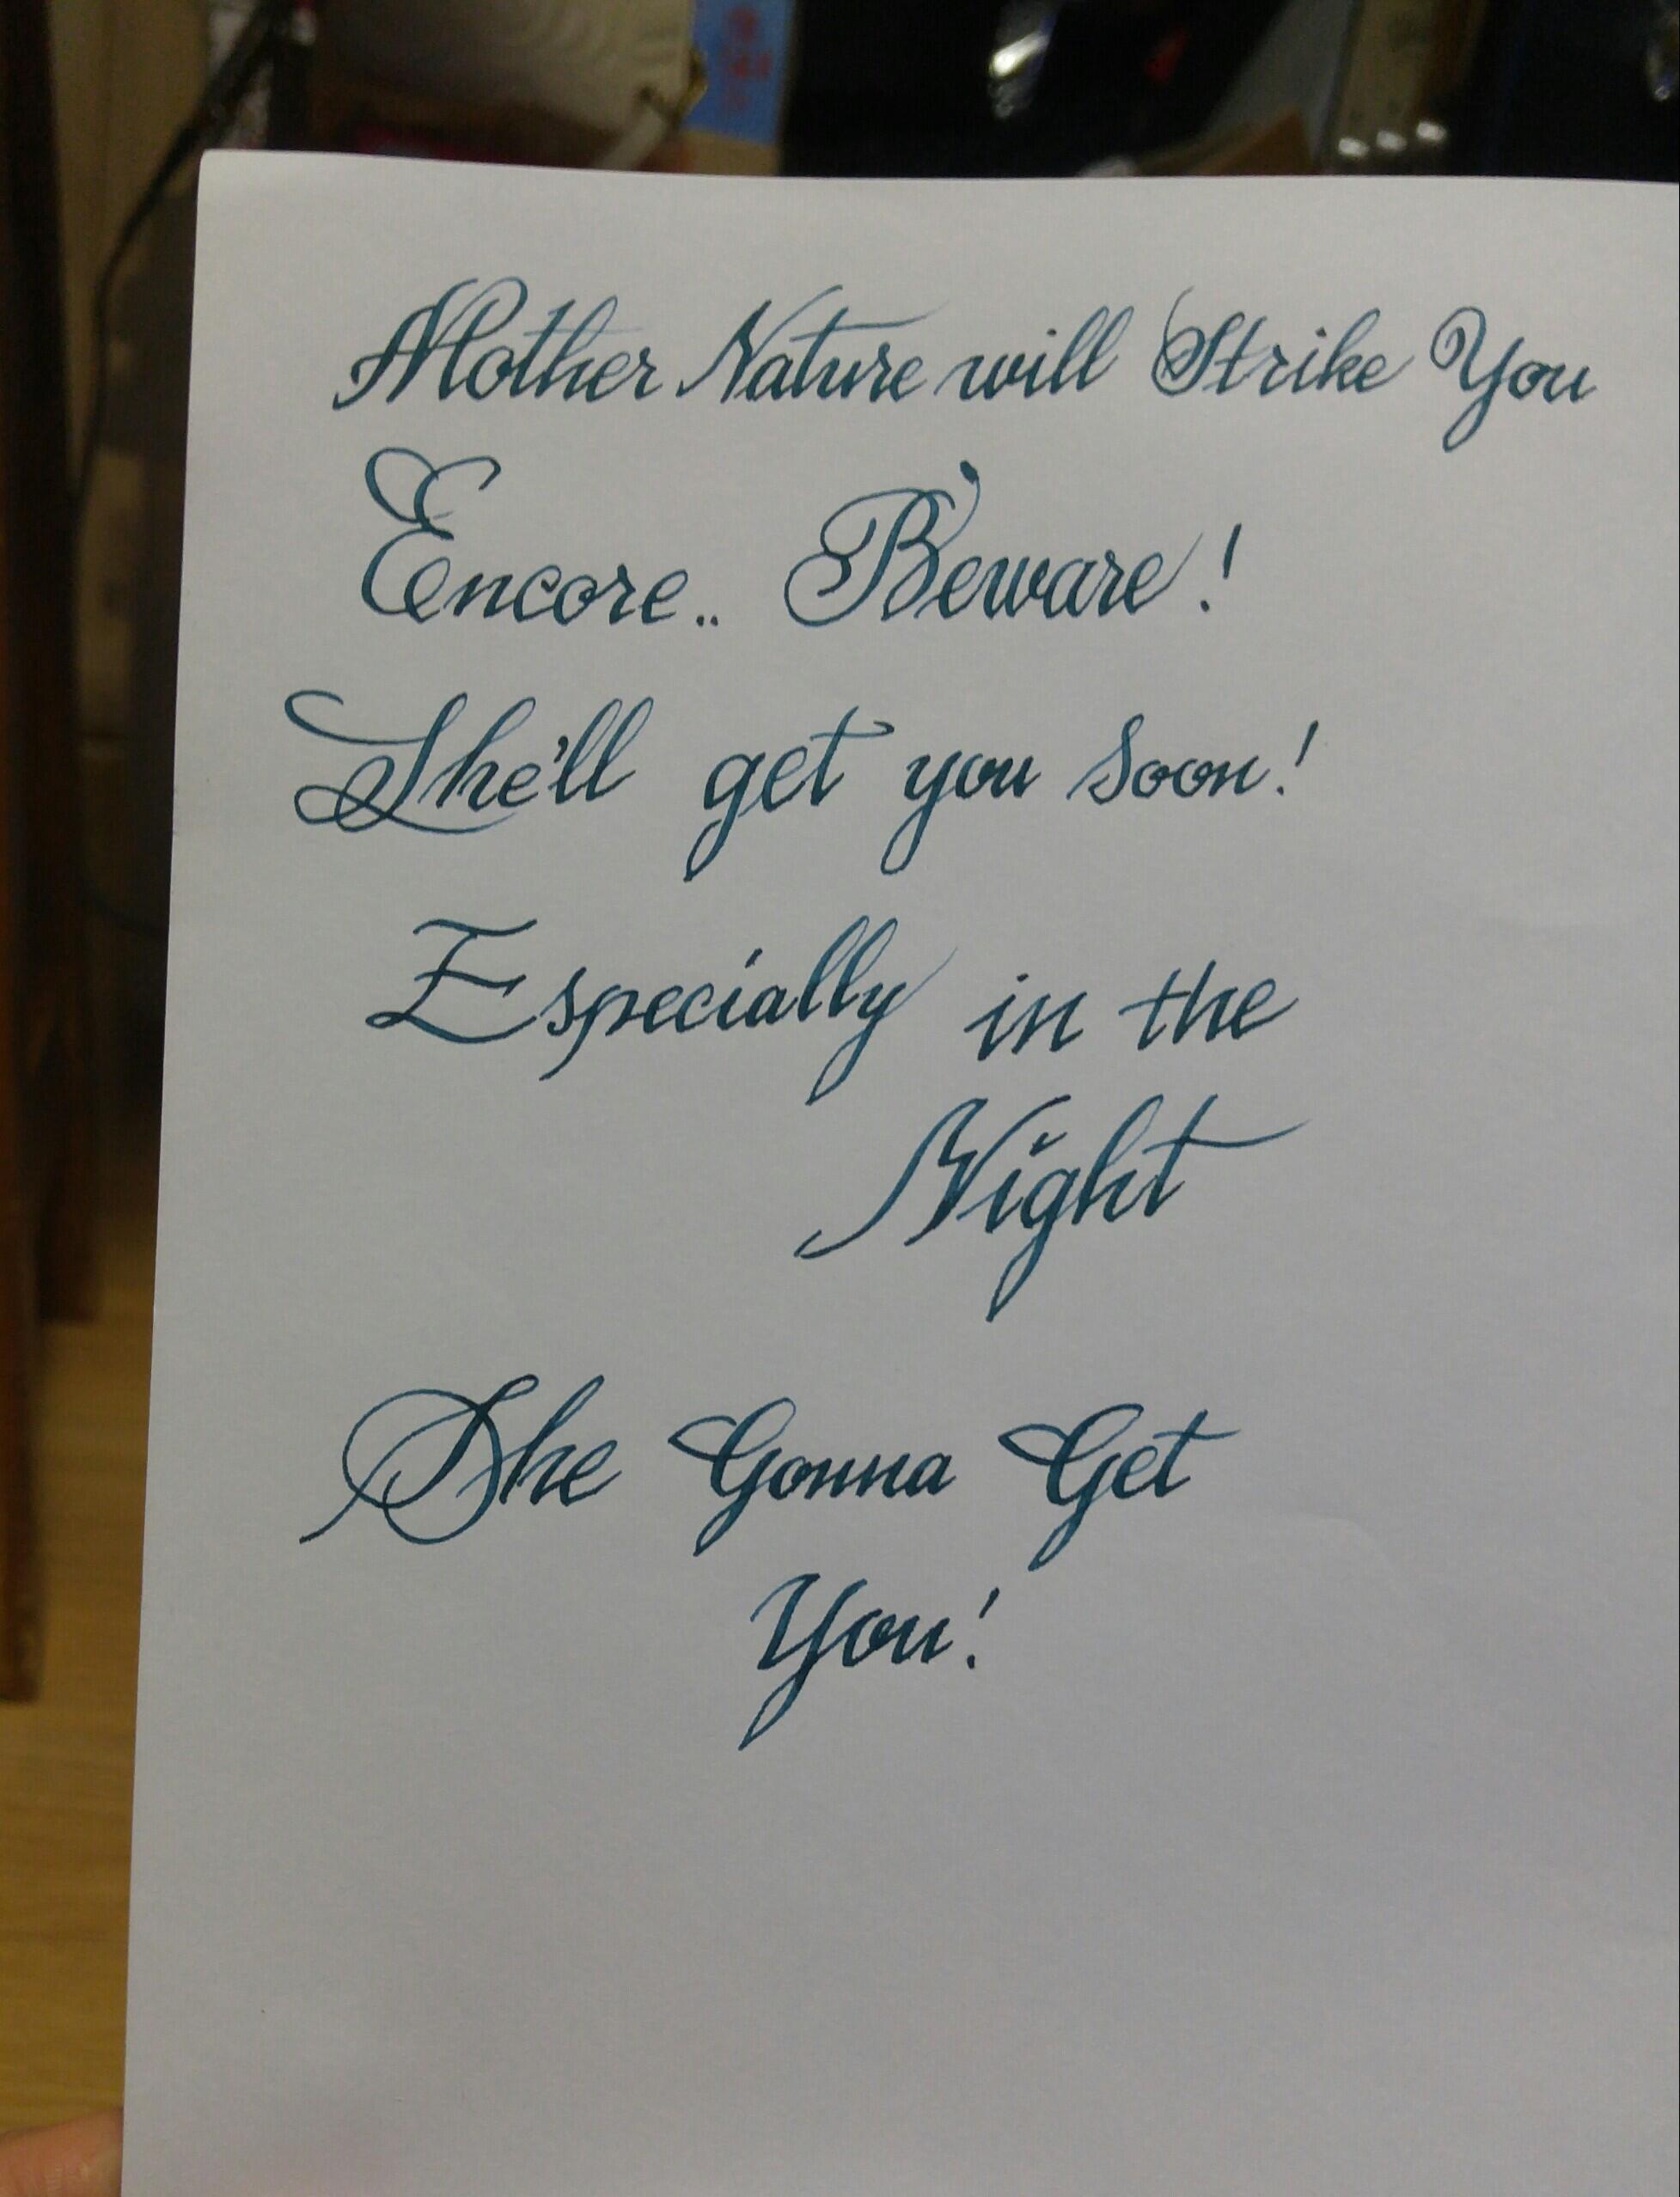 Mother Nature will Strike You
Encore.. Beware!
She'll get you soon!
Especially in the
Night
She Gonna Get
You!